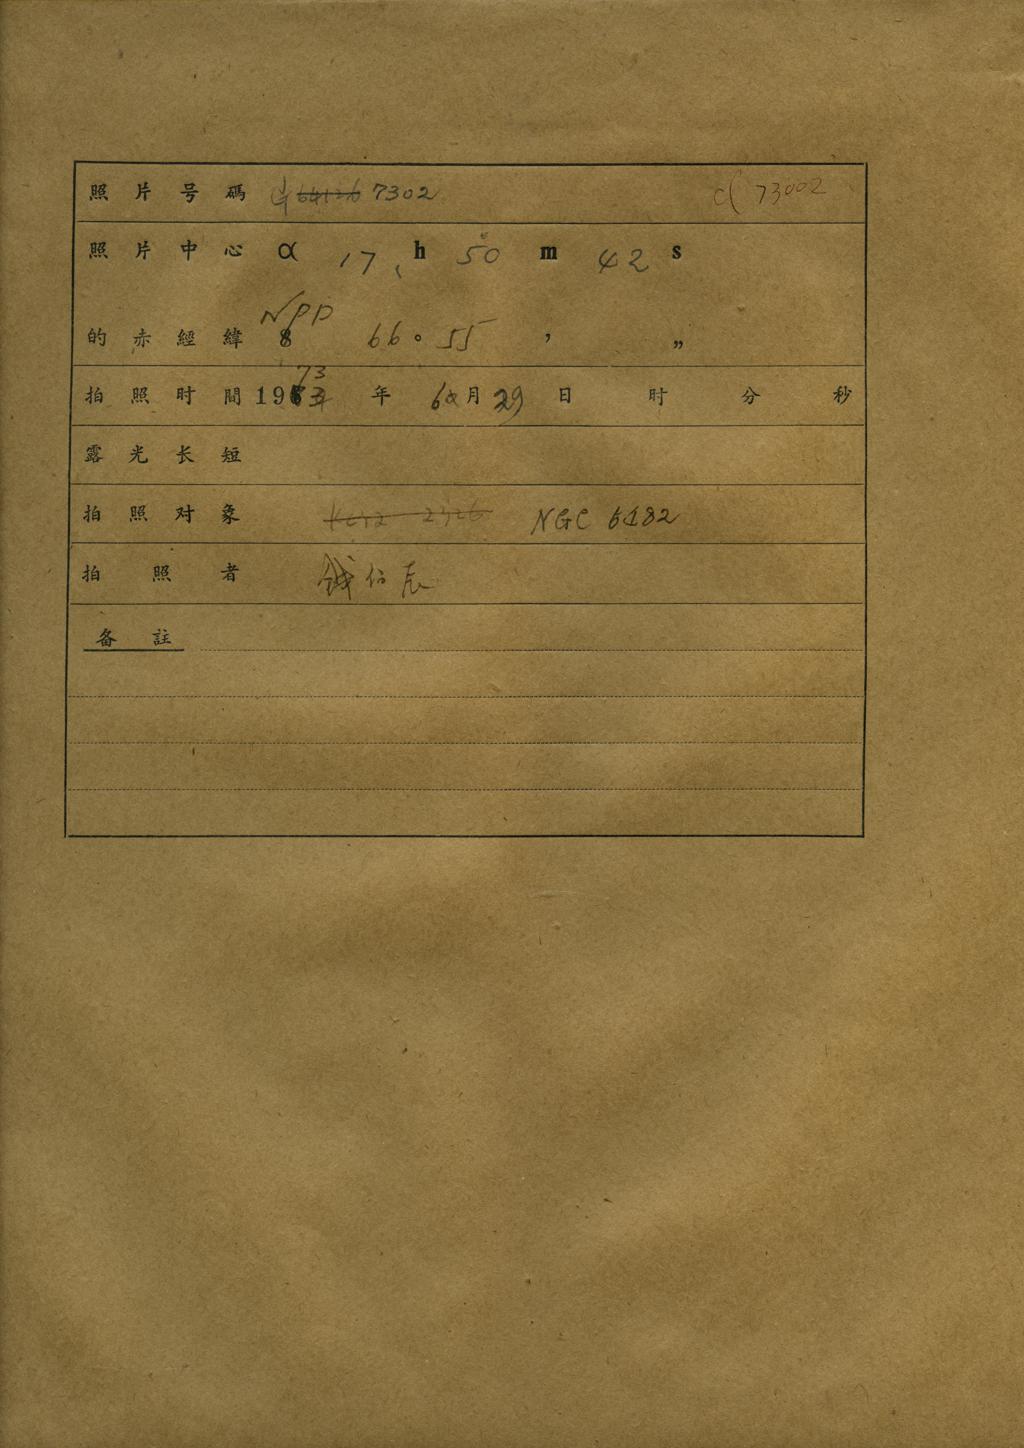 照片号碼 7302 cl 73002
照片中心 α 17 h 50 m 42 s
NPD
的赤經緯 δ 66° 55 ′ ″
73
拍照时間 19 年 6 月 29 日 时 分 秒
露光长短
拍照对象 NGC 6182
拍照者 钱伯辰
备註